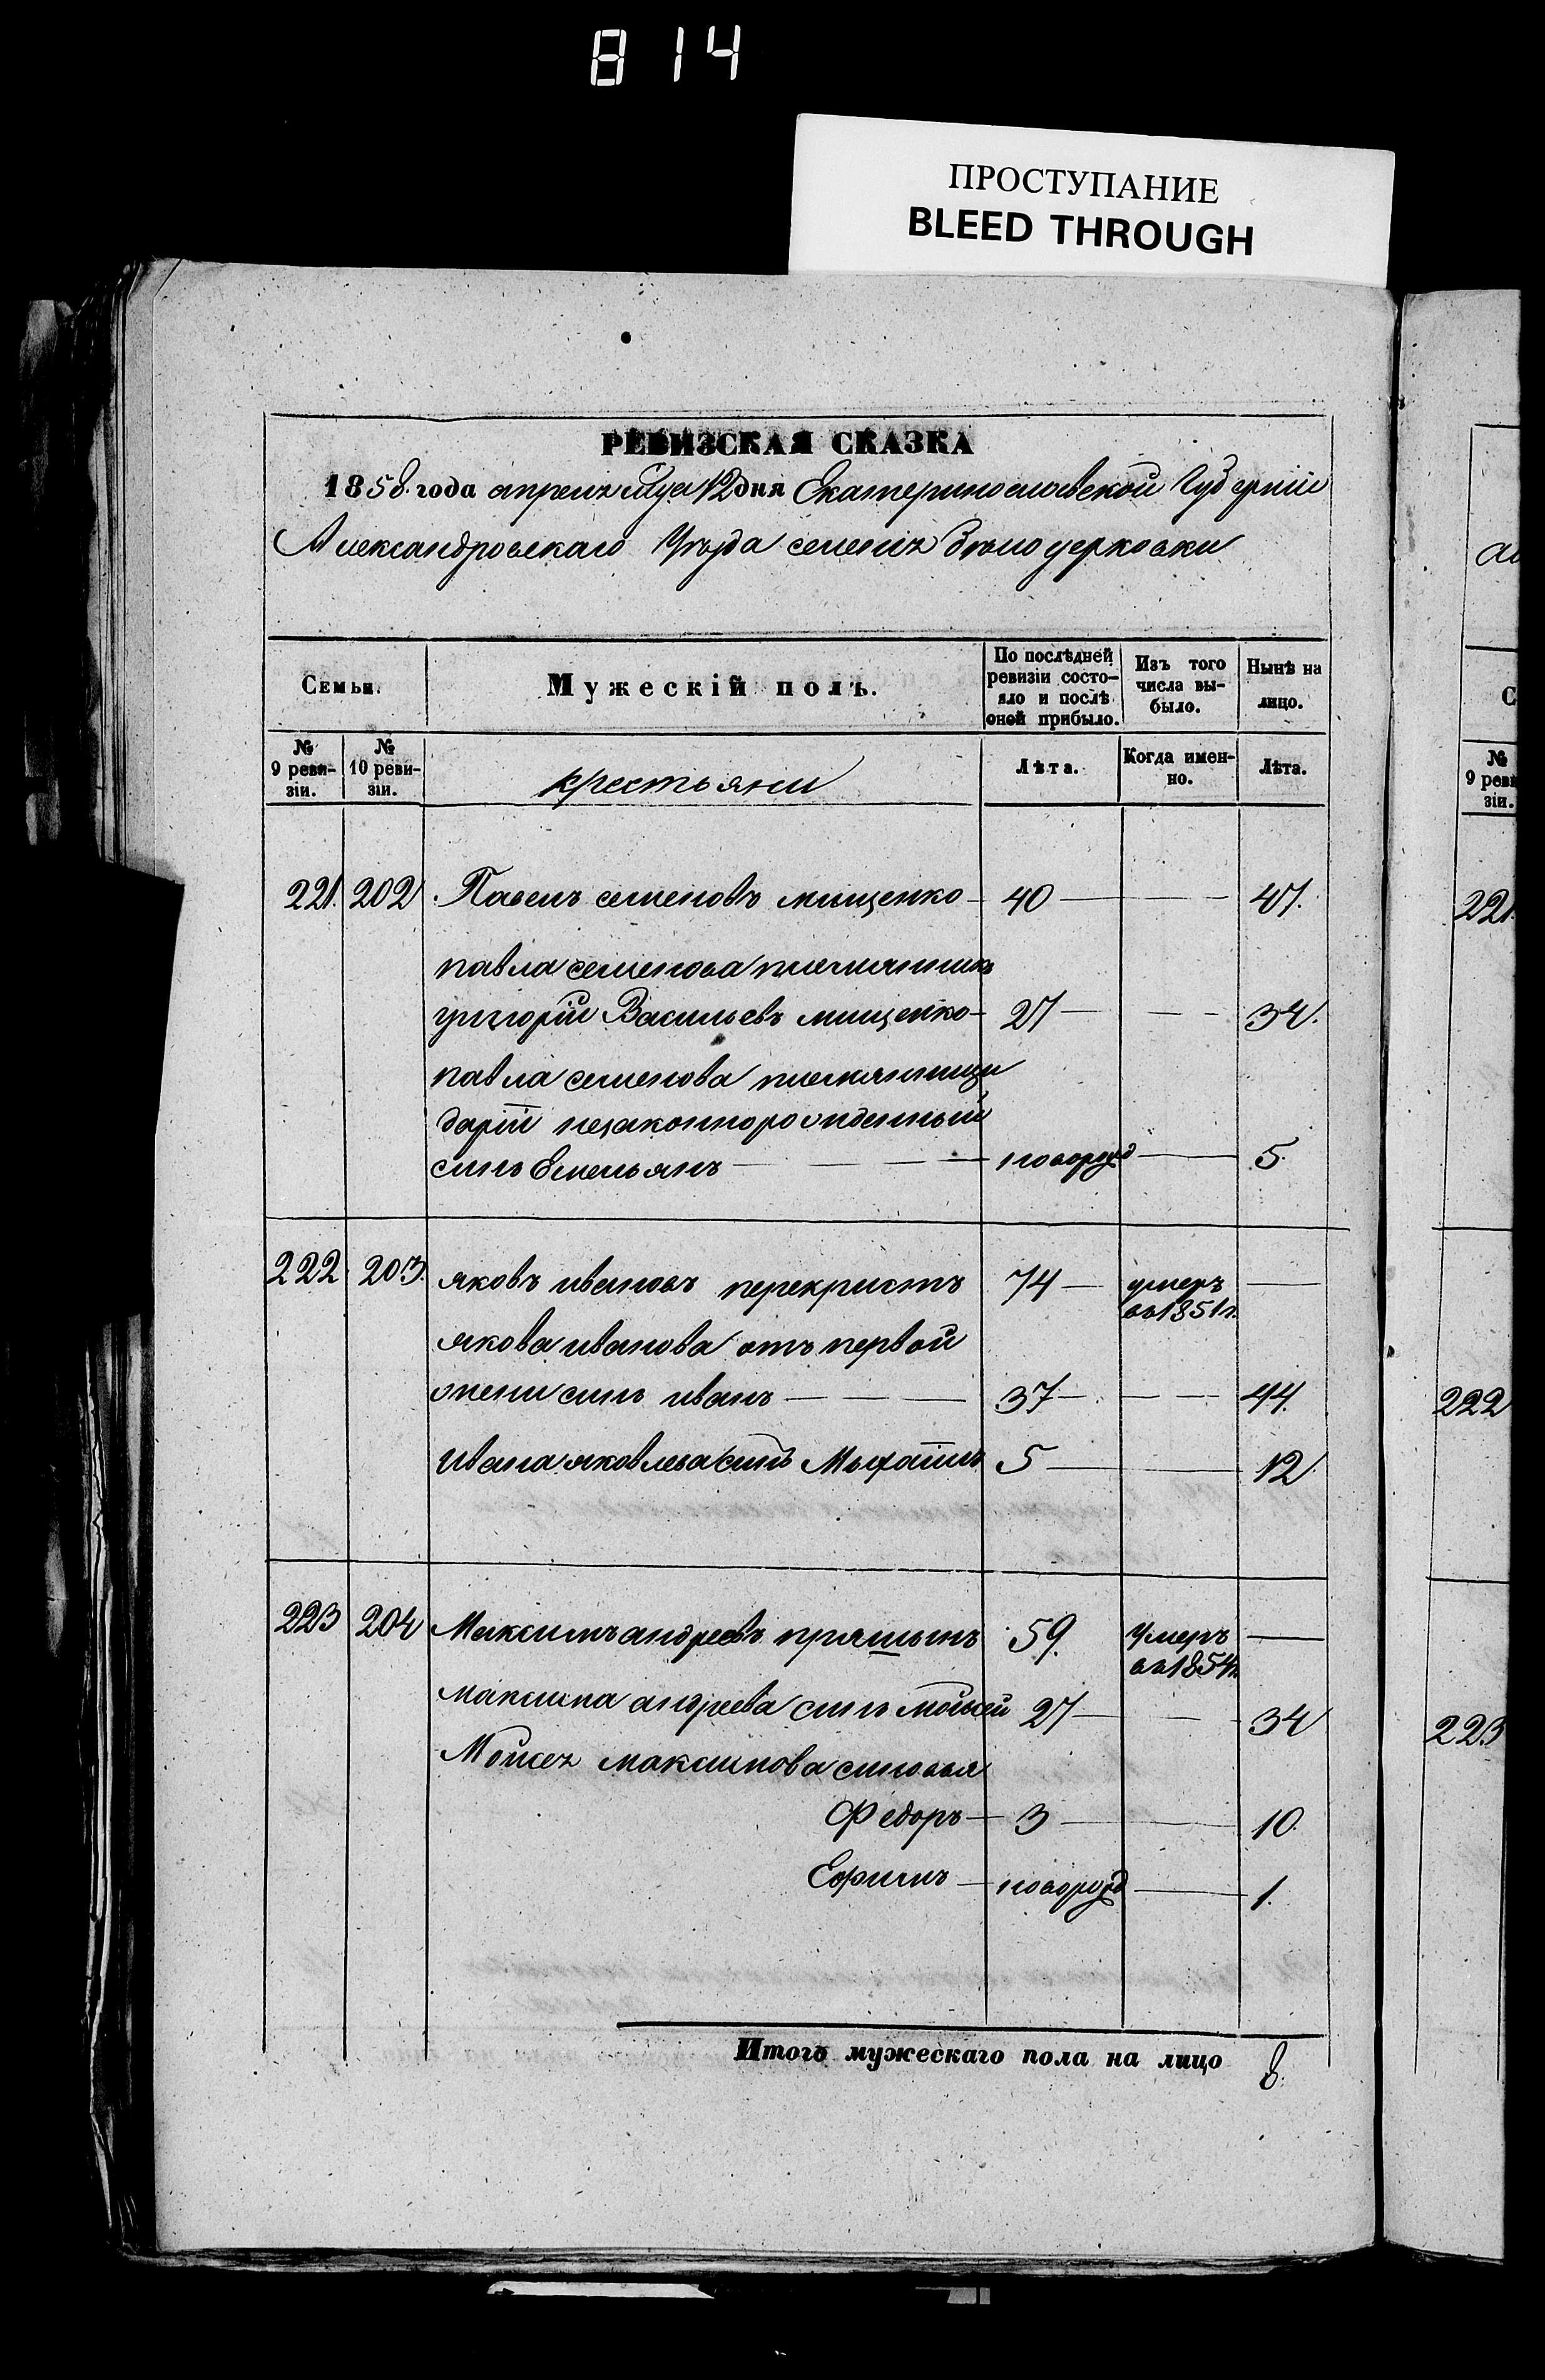 814
ПРОСТУПАНИЕ
BLEED THROUGH
РЕВИЗСКАЯ СКАЗКА
1858 года апреля мца 12 дня Екатеринославской Губерніи
Александровскаго Уѣзда селенія Бѣлоцерковки
Семьи. Мужескій полъ. По послѣдней ревизіи состояло и послѣ оной прибыло. Изъ того числа выбыло. Нынѣ на лицо.
№ 9 ревизіи. № 10 ревизіи. крестьяни Лѣта. Когда именно. Лѣта.
221. 202 Павелъ семеновъ мищенко 40 47.
павла семенова племянникъ
григорій Васильевъ мищенко 27 34.
павла семенова племянници
дарій незаконнорожденный
синъ Емельянъ новорожд 5
222 203. яковъ ивановъ перекристъ 74 умеръ
въ 1851 г.
якова иванова отъ первой
жени синъ иванъ 37 44.
ивана яковлева синъ Михаилъ 5 12
223 204 Максимъ андреевъ пряшынъ 59. Умеръ
въ 1854 г.
максима андреева синъ мойсей 27 34
Мойсея максимова синовья
Федоръ 3 10.
Ефимъ новорожд 1.
Итого мужескаго пола на лицо 8.
С
№ 9 реви
зіи.
221.
222
223